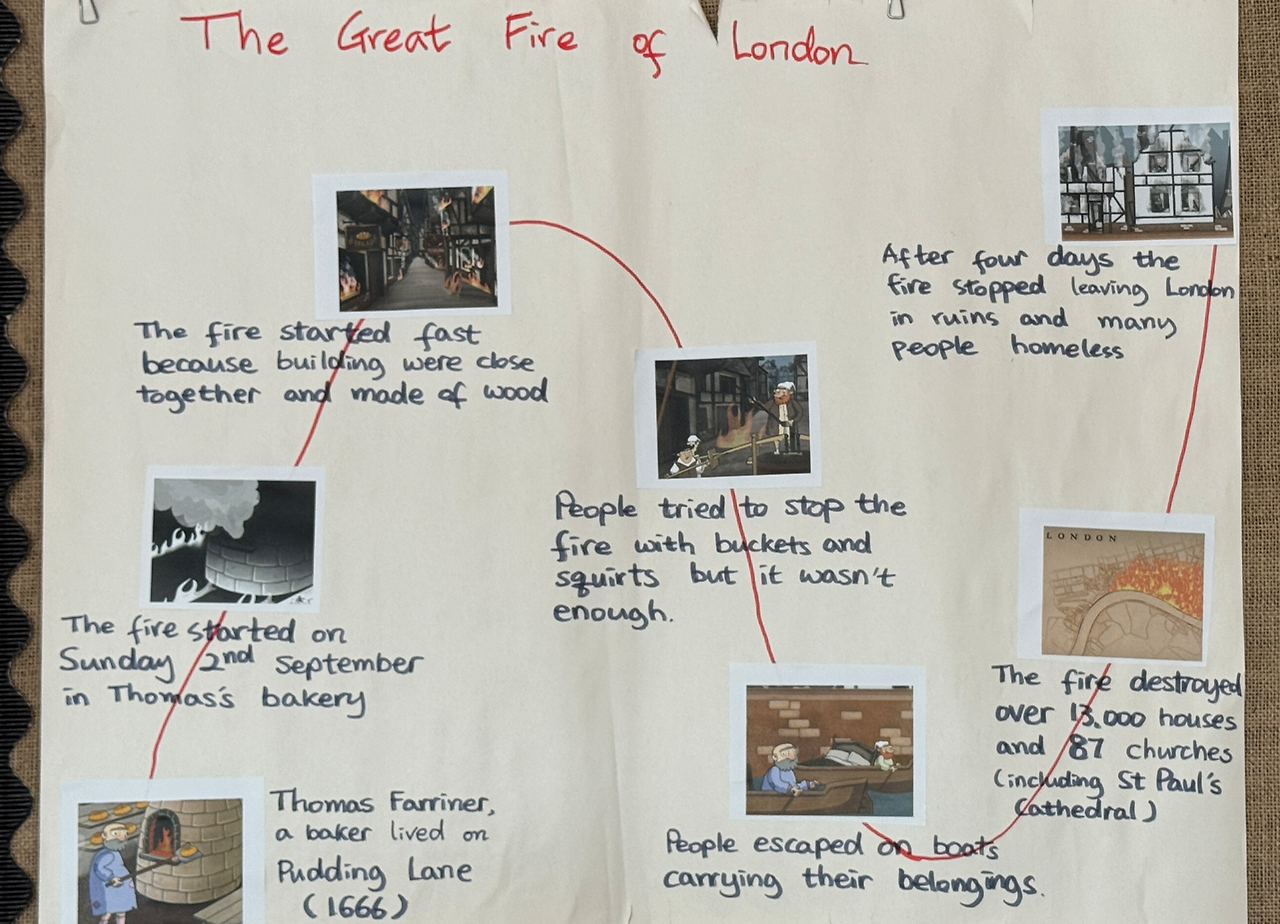 The Great Fire of London
Thomas Farriner,
a baker lived on
Pudding Lane
(1666)
The fire started on
Sunday 2nd September
in Thomas's bakery
The fire started fast
because building were close
together and made of wood
People tried to stop the
fire with buckets and
squirts but it wasn't
enough.
People escaped on boats
carrying their belongings.
LONDON
The fire destroyed
over 13.000 houses
and 87 churches
(including St Paul's
Cathedral)
After four days the
fire stopped leaving London
in ruins and many
people homeless